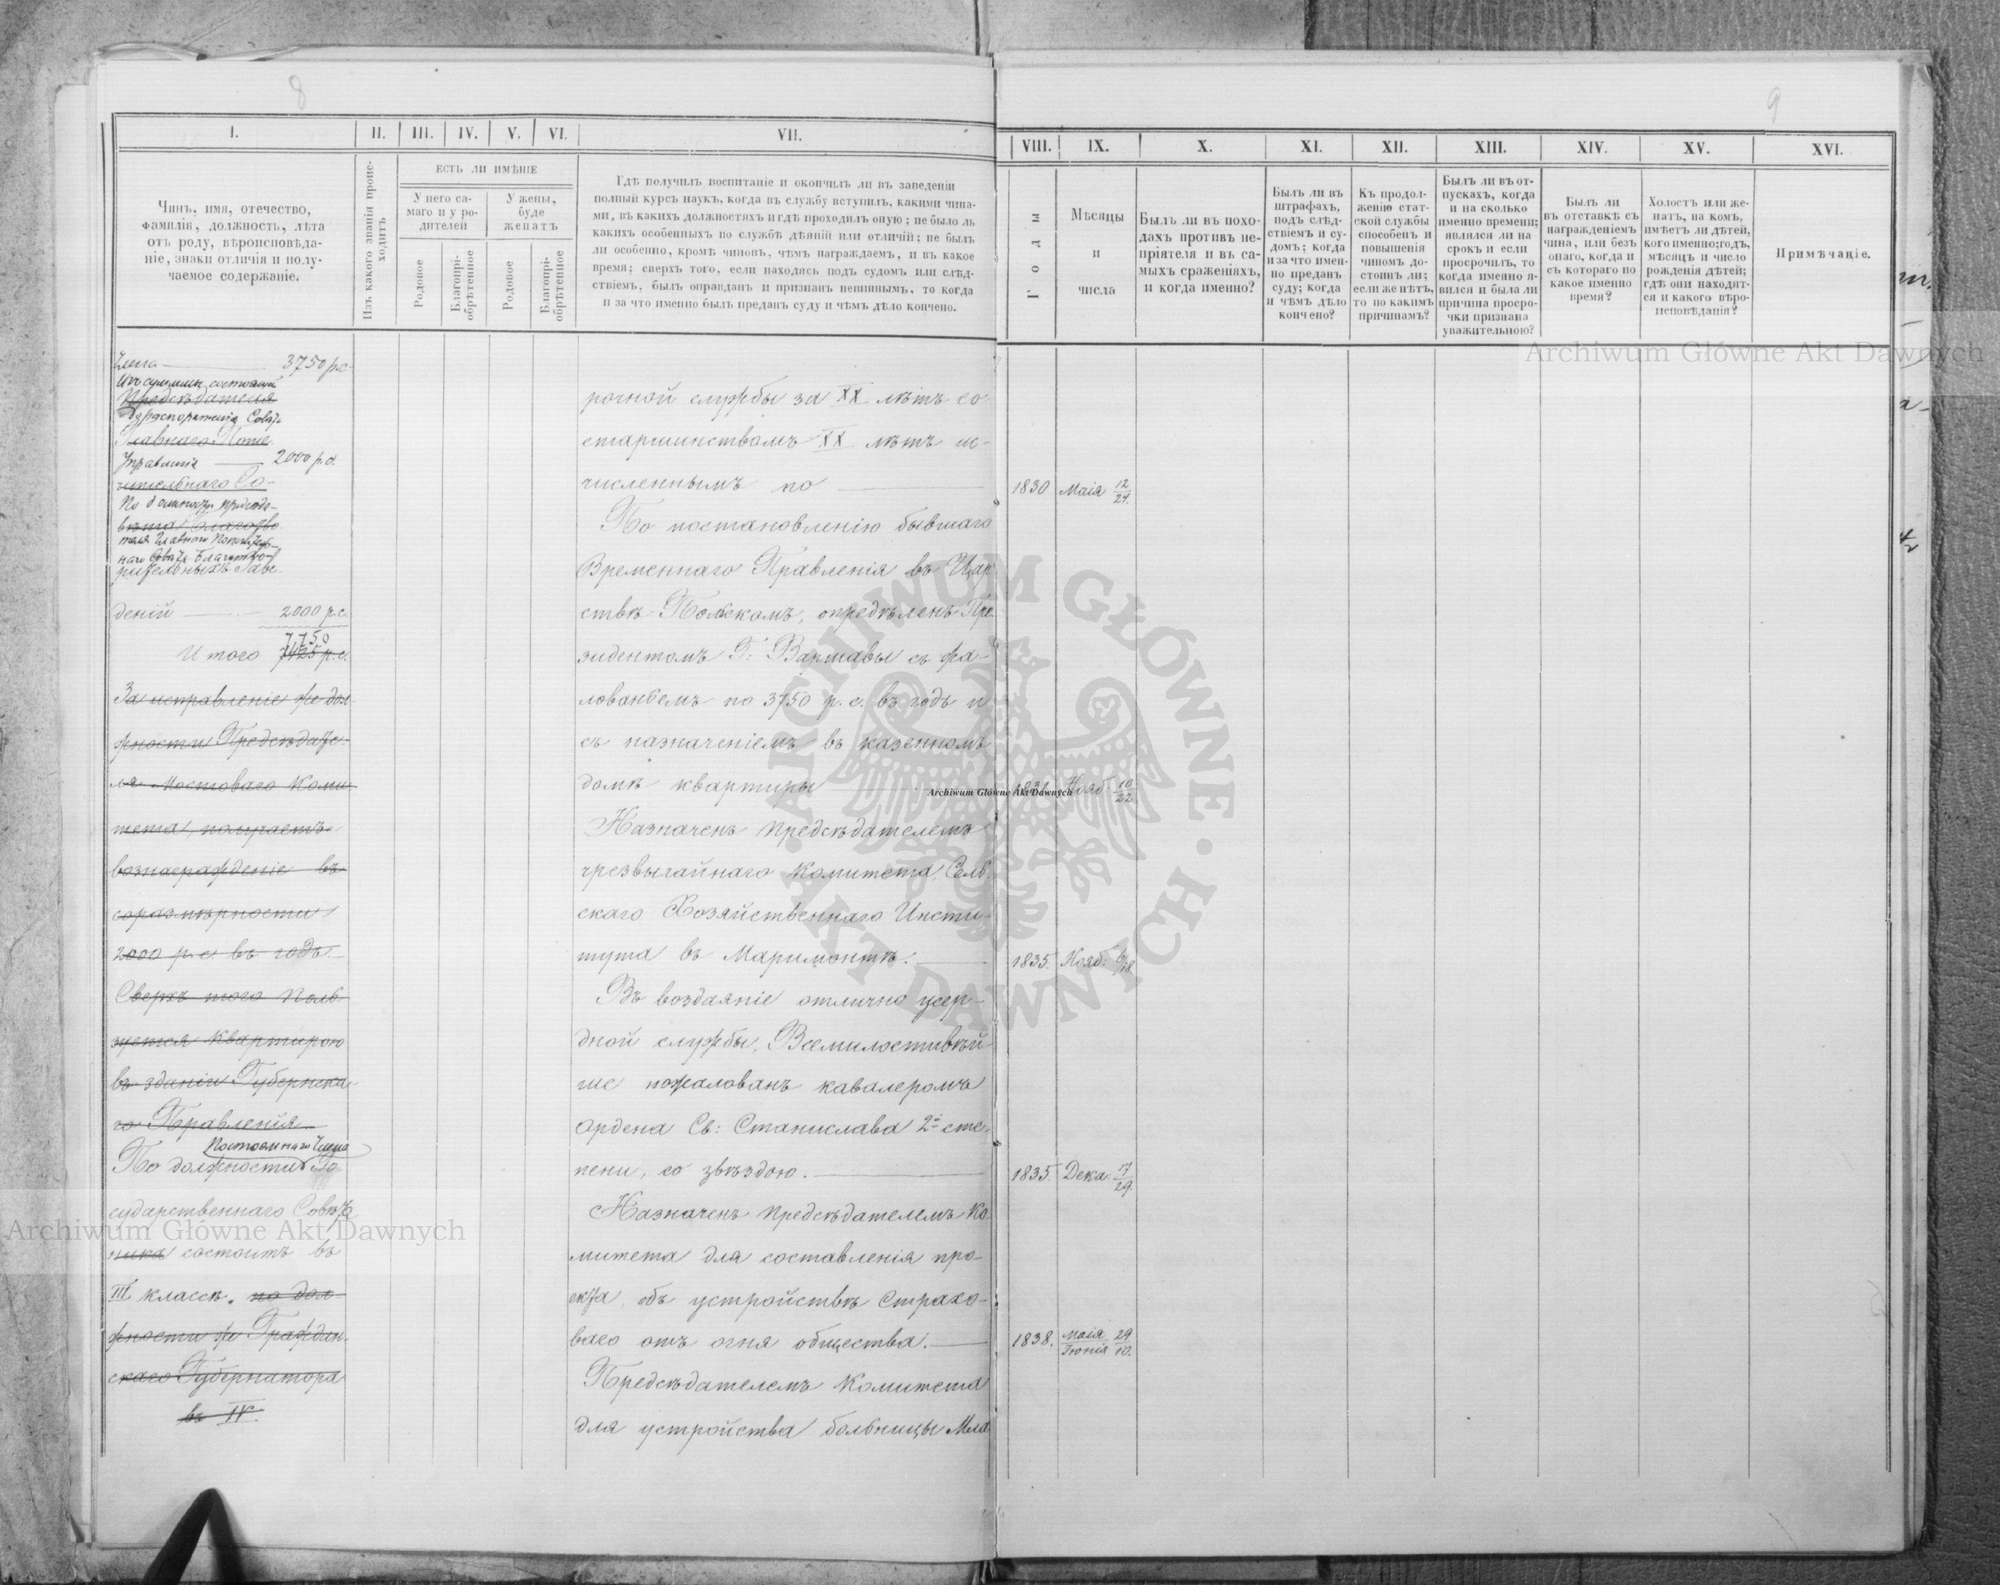 8
9
I.
II.
III.
IV.
V.
VI.
VII.
VIII.
IX.
X.
XI.
XII.
XIII.
XIV.
XV.
XVI.
Чинъ, имя, отечество,
фамилія, должность, лѣта
отъ роду, вѣроисповѣда-
ніе, знаки отличія и полу-
чаемое содержаніе.
Изъ какого званія проис-
ходитъ
ЕСТЬ ЛИ ИМѢНІЕ
У него са-
маго и у ро-
дителей
У жены,
буде
женатъ
Родовое
Благопрі-
обрѣтенное
Родовое
Благопрі-
обрѣтенное
Гдѣ получилъ воспитаніе и окончилъ ли въ заведеніи
полный курсъ наукъ, когда въ службу вступилъ, какими чина-
ми, въ какихъ должностяхъ и гдѣ проходилъ оную; не было ль
какихъ особенныхъ по службѣ дѣяній или отличій; не былъ
ли особенно, кромѣ чиновъ, чѣмъ награждаемъ, и въ какое
время; сверхъ того, если находясь подъ судомъ или слѣд-
ствіемъ, былъ оправданъ и признанъ невиннымъ, то когда
и за что именно былъ преданъ суду и чѣмъ дѣло кончено.
Годы
Мѣсяцы
и
числа
Былъ ли въ похо-
дахъ противъ не-
пріятеля и въ са-
мыхъ сраженіяхъ,
и когда именно?
Былъ ли въ
штрафахъ,
подъ слѣд-
ствіемъ и су-
домъ; когда
и за что имен-
но преданъ
суду; когда
и чѣмъ дѣло
кончено?
Къ продол-
женію стат-
ской службы
способенъ и
повышенія
чиномъ до-
стоинъ ли;
если же нѣтъ,
то по какимъ
причинамъ?
Былъ ли въ от-
пускахъ, когда
и на сколько
именно времени;
являлся ли на
срокъ и если
просрочилъ, то
когда именно я-
вился и была ли
причина просро-
чки признана
уважительною?
Былъ ли
въ отставкѣ съ
награжденіемъ
чина, или безъ
онаго, когда и
съ котораго по
какое именно
время?
Холостъ или же-
натъ, на комъ,
имѣетъ ли дѣтей,
кого именно; годъ,
мѣсяцъ и число
рожденія дѣтей;
гдѣ они находят-
ся и какого вѣро-
исповѣданія?
Примѣчаніе.
Члена 3750 р.с.
Изъ суммъ состоящей
Предсѣдателя
распоряженія Совѣта
Главнаго Попе
Управленія 2000 р.с.
чительнаго Со-
По должности предсѣда-
вѣта Благотво
теля Главнаго Попечитель-
наго Совѣта Благотво-
рительныхъ Заве
деній 2000 р.с.
7,750
Итого 7125 р.с.
За исправленіе же дол
жности Предсѣдате-
ля Мостоваго Коми
тета, получаетъ
вознагражденіе въ
соразмѣрности
2000 р.с. въ годъ.
Сверхъ того поль
зуется квартирою
въ зданіи Губернска-
го Правленія
Постояннаго Члена
По должности Го-
сударственнаго Совѣта
ника состоитъ въ
III классѣ, по дол-
жности же Граждан-
скаго Губернатора
въ IV.
рочной службы за XX лѣтъ со
старшинствамъ XX лѣтъ ис-
численнымъ по
1830 Маія 12/24.
По постановленію бывшаго
Временнаго Правленія въ Цар
ствѣ Польскомъ, опредѣленъ Пре
зидентомъ Г: Варшавы съ жа-
лованьемъ по 3750 р. с. въ годъ и
съ назначеніемъ въ казенномъ
домѣ квартиры
1831. Нояб: 10/22.
Назначенъ Предсѣдателемъ
чрезвычайнаго Комитета Сель
скаго Хозяйственнаго Инсти-
тута въ Маримонтѣ.
1835. Нояб: 6/18.
Въ воздаяніе отлично усер-
дной службы, Всемилостивѣй-
ше пожалованъ кавалеромъ
Ордена Св: Станислава 2й сте-
пени, со звѣздою.
1835. Дека. 17/29.
Назначенъ Предсѣдателемъ Ко
митета для составленія про-
екта, объ устройствѣ Страхо-
ваго отъ огня общества.
1838. Маія 29 / Іюнія 10.
Предсѣдателемъ Комитета
для устройства больницы Мла
Archiwum Główne Akt Dawnych
Archiwum Główne Akt Dawnych
Archiwum Główne Akt Dawnych
ARCHIWUM GŁÓWNE · AKT DAWNYCH ·